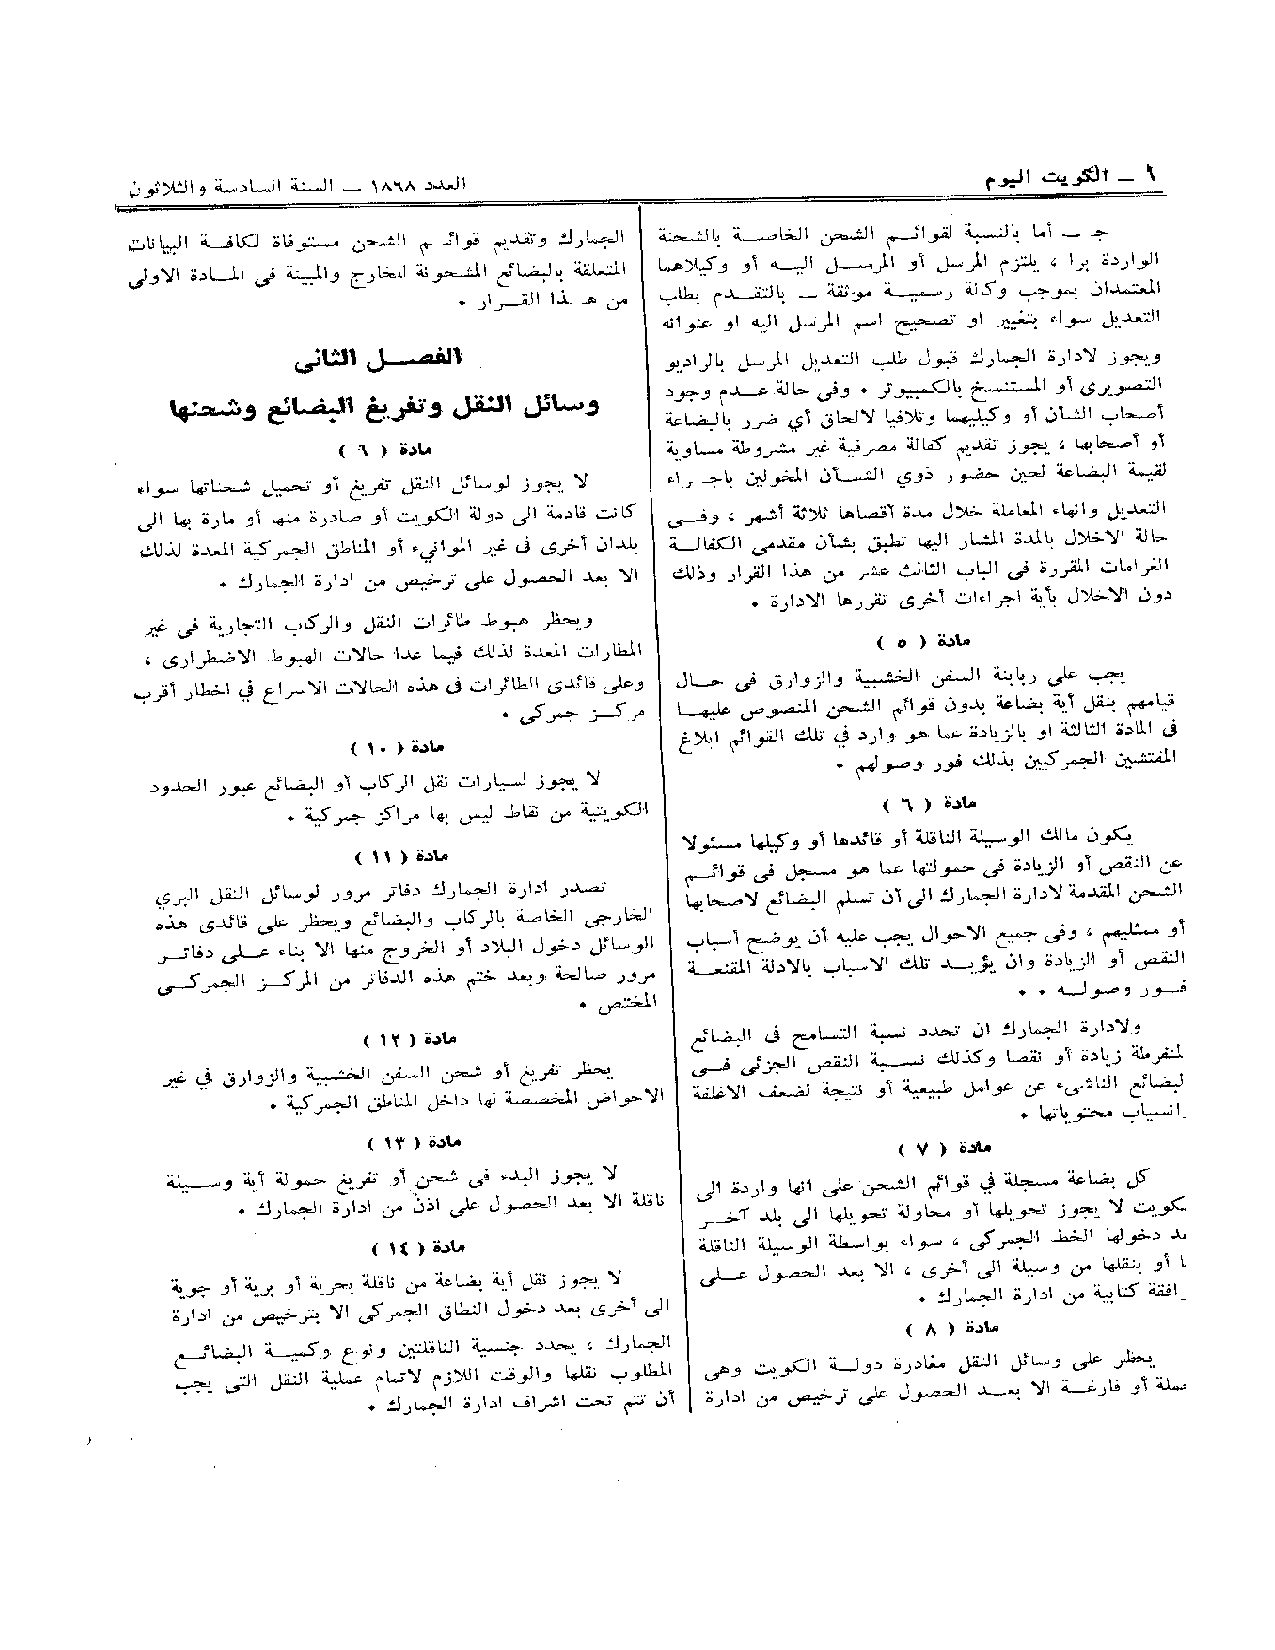 ٦ ــ الكويت اليوم
العدد ١٨٦٨ ــ السنة السادسة والثلاثون
جـ ــ أما بالنسبة لقوائم الشحن الخاصة بالشحنة
الواردة برا ، يلتزم المرسل أو المرسل اليه أو وكيلاهما
المعتمدان بموجب وكالة رسمية موثقة ــ بالتقدم بطلب
التعديل سواء بتغيير او تصحيح اسم المرسل اليه او عنوانه
ويجوز لادارة الجمارك قبول طلب التعديل المرسل بالراديو
التصويرى أو المستنسخ بالكمبيوتر ٠ وفى حالة عدم وجود
أصحاب الشأن أو وكيليهما وتلافيا لالحاق أي ضرر بالبضاعة
أو أصحابها ، يجوز تقديم كفالة مصرفية غير مشروطة مساوية
لقيمة البضاعة لحين حضور ذوي الشأن المخولين باجراء
التعديل وانهاء المعاملة خلال مدة أقصاها ثلاثة أشهر ، وفى
حالة الاخلال بالمدة المشار اليها تطبق بشأن مقدمى الكفالة
الغرامات المقررة فى الباب الثالث عشر من هذا القرار وذلك
دون الاخلال بأية اجراءات أخرى تقررها الادارة ٠
مادة ( ٥ )
يجب على ربابنة السفن الخشبية والزوارق فى حال
قيامهم بنقل أية بضاعة بدون قوائم الشحن المنصوص عليها
فى المادة الثالثة او بالزيادة عما هو وارد في تلك القوائم ابلاغ
المفتشين الجمركيين بذلك فور وصولهم ٠
مادة ( ٦ )
يكون مالك الوسيلة الناقلة أو قائدها أو وكيلها مسئولا
عن النقص أو الزيادة فى حمولتها عما هو مسجل فى قوائم
الشحن المقدمة لادارة الجمارك الى أن تسلم البضائع لاصحابها
أو ممثليهم ، وفى جميع الاحوال يجب عليه أن يوضح أسباب
النقص أو الزيادة وان يؤيد تلك الاسباب بالادلة المقنعة
فور وصوله ٠ ٠
ولادارة الجمارك ان تحدد نسبة التسامح فى البضائع
لمنفرطة زيادة أو نقصا وكذلك نسبة النقص الجزئى فى
لبضائع الناشىء عن عوامل طبيعية أو نتيجة لضعف الاغلفة
انسياب محتوياتها ٠
مادة ( ٧ )
كل بضاعة مسجلة في قوائم الشحن على انها واردة الى
كويت لا يجوز تحويلها أو محاولة تحويلها الى بلد آخر
عد دخولها الخط الجمركى ، سواء بواسطة الوسيلة الناقلة
ا أو بنقلها من وسيلة الى أخرى ، الا بعد الحصول على
افقة كتابية من ادارة الجمارك ٠
مادة ( ٨ )
يحظر على وسائل النقل مغادرة دولة الكويت وهى
حملة أو فارغة الا بعد الحصول على ترخيص من ادارة
الجمارك وتقديم قوائم الشحن مستوفاة لكافة البيانات
المتعلقة بالبضائع المشحونة للخارج والمبينة فى المادة الاولى
من هذا القرار ٠
الفصل الثانى
وسائل النقل وتفريغ البضائع وشحنها
مادة ( ٩ )
لا يجوز لوسائل النقل تفريغ أو تحميل شحناتها سواء
كانت قادمة الى دولة الكويت أو صادرة منها أو مارة بها الى
بلدان أخرى فى غير الموانىء أو المناطق الجمركية المعدة لذلك
الا بعد الحصول على ترخيص من ادارة الجمارك ٠
ويحظر هبوط طائرات النقل والركاب التجارية فى غير
المطارات المعدة لذلك فيما عدا حالات الهبوط الاضطرارى ،
وعلى قائدى الطائرات فى هذه الحالات الاسراع في اخطار أقرب
مركز جمركى ٠
مادة ( ١٠ )
لا يجوز لسيارات نقل الركاب أو البضائع عبور الحدود
الكويتية من نقاط ليس بها مراكز جمركية ٠
مادة ( ١١ )
تصدر ادارة الجمارك دفاتر مرور لوسائل النقل البري
الخارجى الخاصة بالركاب والبضائع ويحظر على قائدى هذه
الوسائل دخول البلاد أو الخروج منها الا بناء على دفاتر
مرور صالحة وبعد ختم هذه الدفاتر من المركز الجمركى
المختص ٠
مادة ( ١٢ )
يحظر تفريغ أو شحن السفن الخشبية والزوارق في غير
الاحواض المخصصة لها داخل المناطق الجمركية ٠
مادة ( ١٣ )
لا يجوز البدء فى شحن أو تفريغ حمولة أية وسيلة
ناقلة الا بعد الحصول على اذن من ادارة الجمارك ٠
مادة ( ١٤ )
لا يجوز نقل أية بضاعة من ناقلة بحرية أو برية أو جوية
الى أخرى بعد دخول النطاق الجمركى الا بترخيص من ادارة
الجمارك ، يحدد جنسية الناقلتين ونوع وكمية البضائع
المطلوب نقلها والوقت اللازم لاتمام عملية النقل التى يجب
أن تتم تحت اشراف ادارة الجمارك ٠